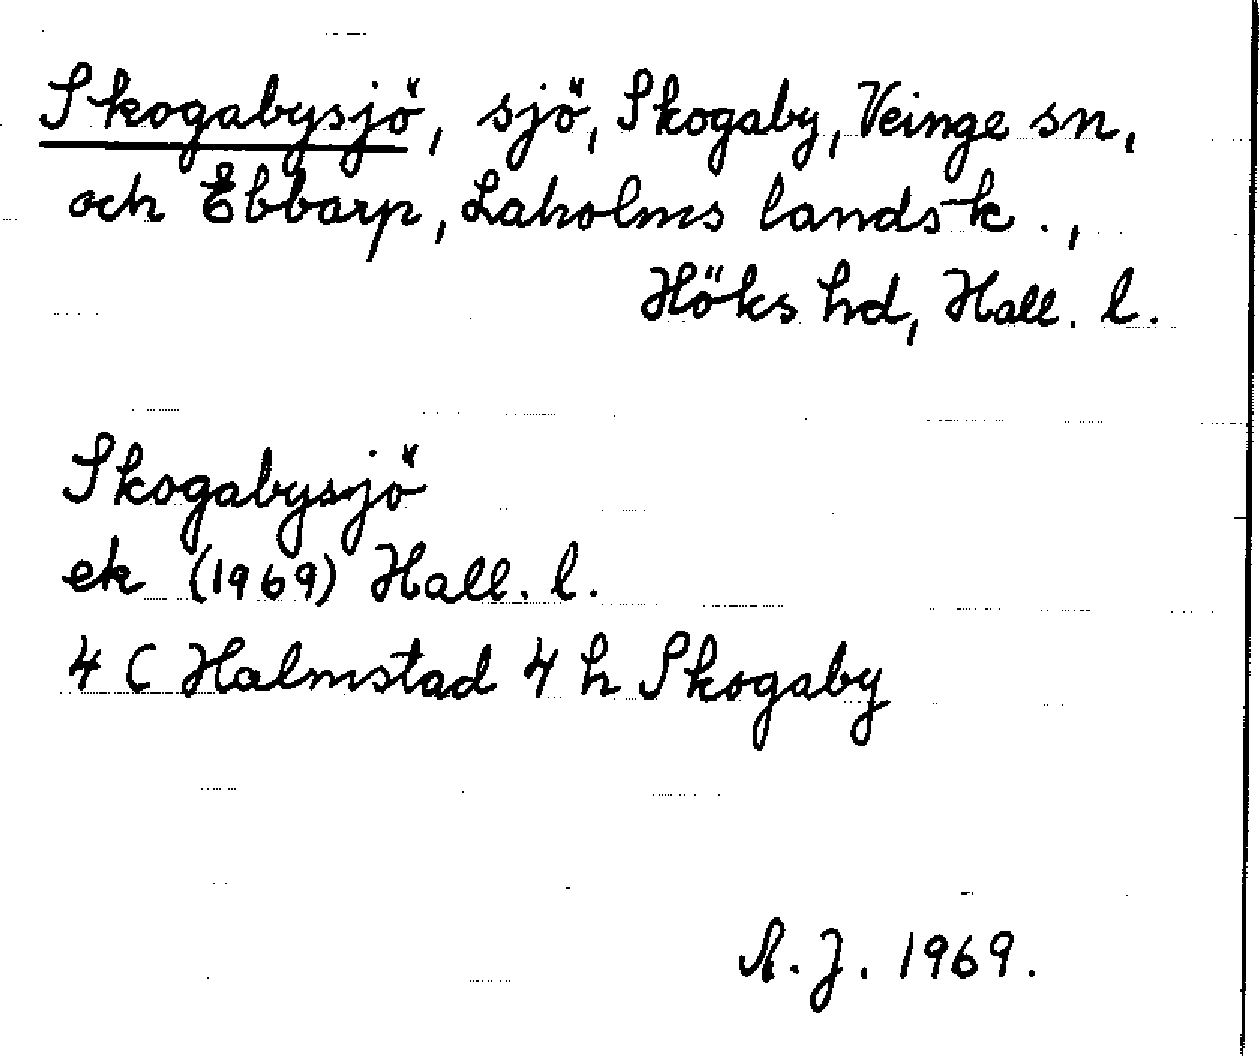 Skogabysjö, sjö, Skogaby, Veinge sn,
och Ebbarp, Laholms landsk.,
Höks hd, Hall. l.
Skogabysjö
ek (1969) Hall. l.
4 C Halmstad 4 h Skogaby
A. J. 1969.